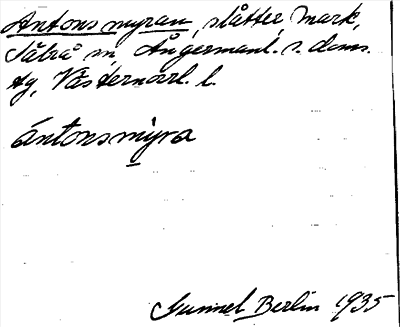 Antonsmyran, slåtter, Mark,
Såbrå sn, Ångermanl. s. doms.
tg, Västernorrl. l.
ántonsmyra
Gunnel Berlin 1935